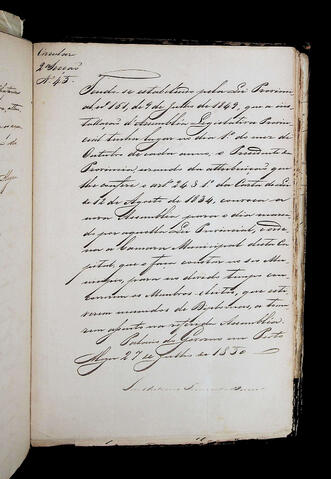 Circular
2ª Secção
Nº 45.
Tendo se estabelecido pela Lei Provin
cial nº 151, de 9 de Julho de 1849, que a ins
tallação d'Assemblea Legislativa Provin
cial tenha lugar no dia 1º do mez de
Outubro de cada anno, o Presidente da
Provincia, usando da attribuição que
lhe confere o artº 24 § 1º da Carta de Lei
de 12 de Agosto de 1834, convoca a
nova Assemblea para o dia marca
do por aquella Lei Provincial, e
a Camara Municipal desta Ca
pital, que o faça constar no seo Mu
nicipio, para no devido tempo con
correrem os Membros eleitos, que esti
verem munidos de Diplomas, a to
rem assento na referida Assemblea.
Palacio do Governo em Porto
Alegre 27 de Julho de 1850